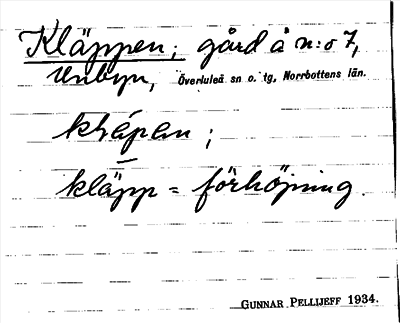 Kläppen; gård å n:o 7,
Unbyn, Överluleå sn o. tg, Norrbottens län.
klápan;
kläpp = förhöjning.
GUNNAR PELLIJEFF 1934.